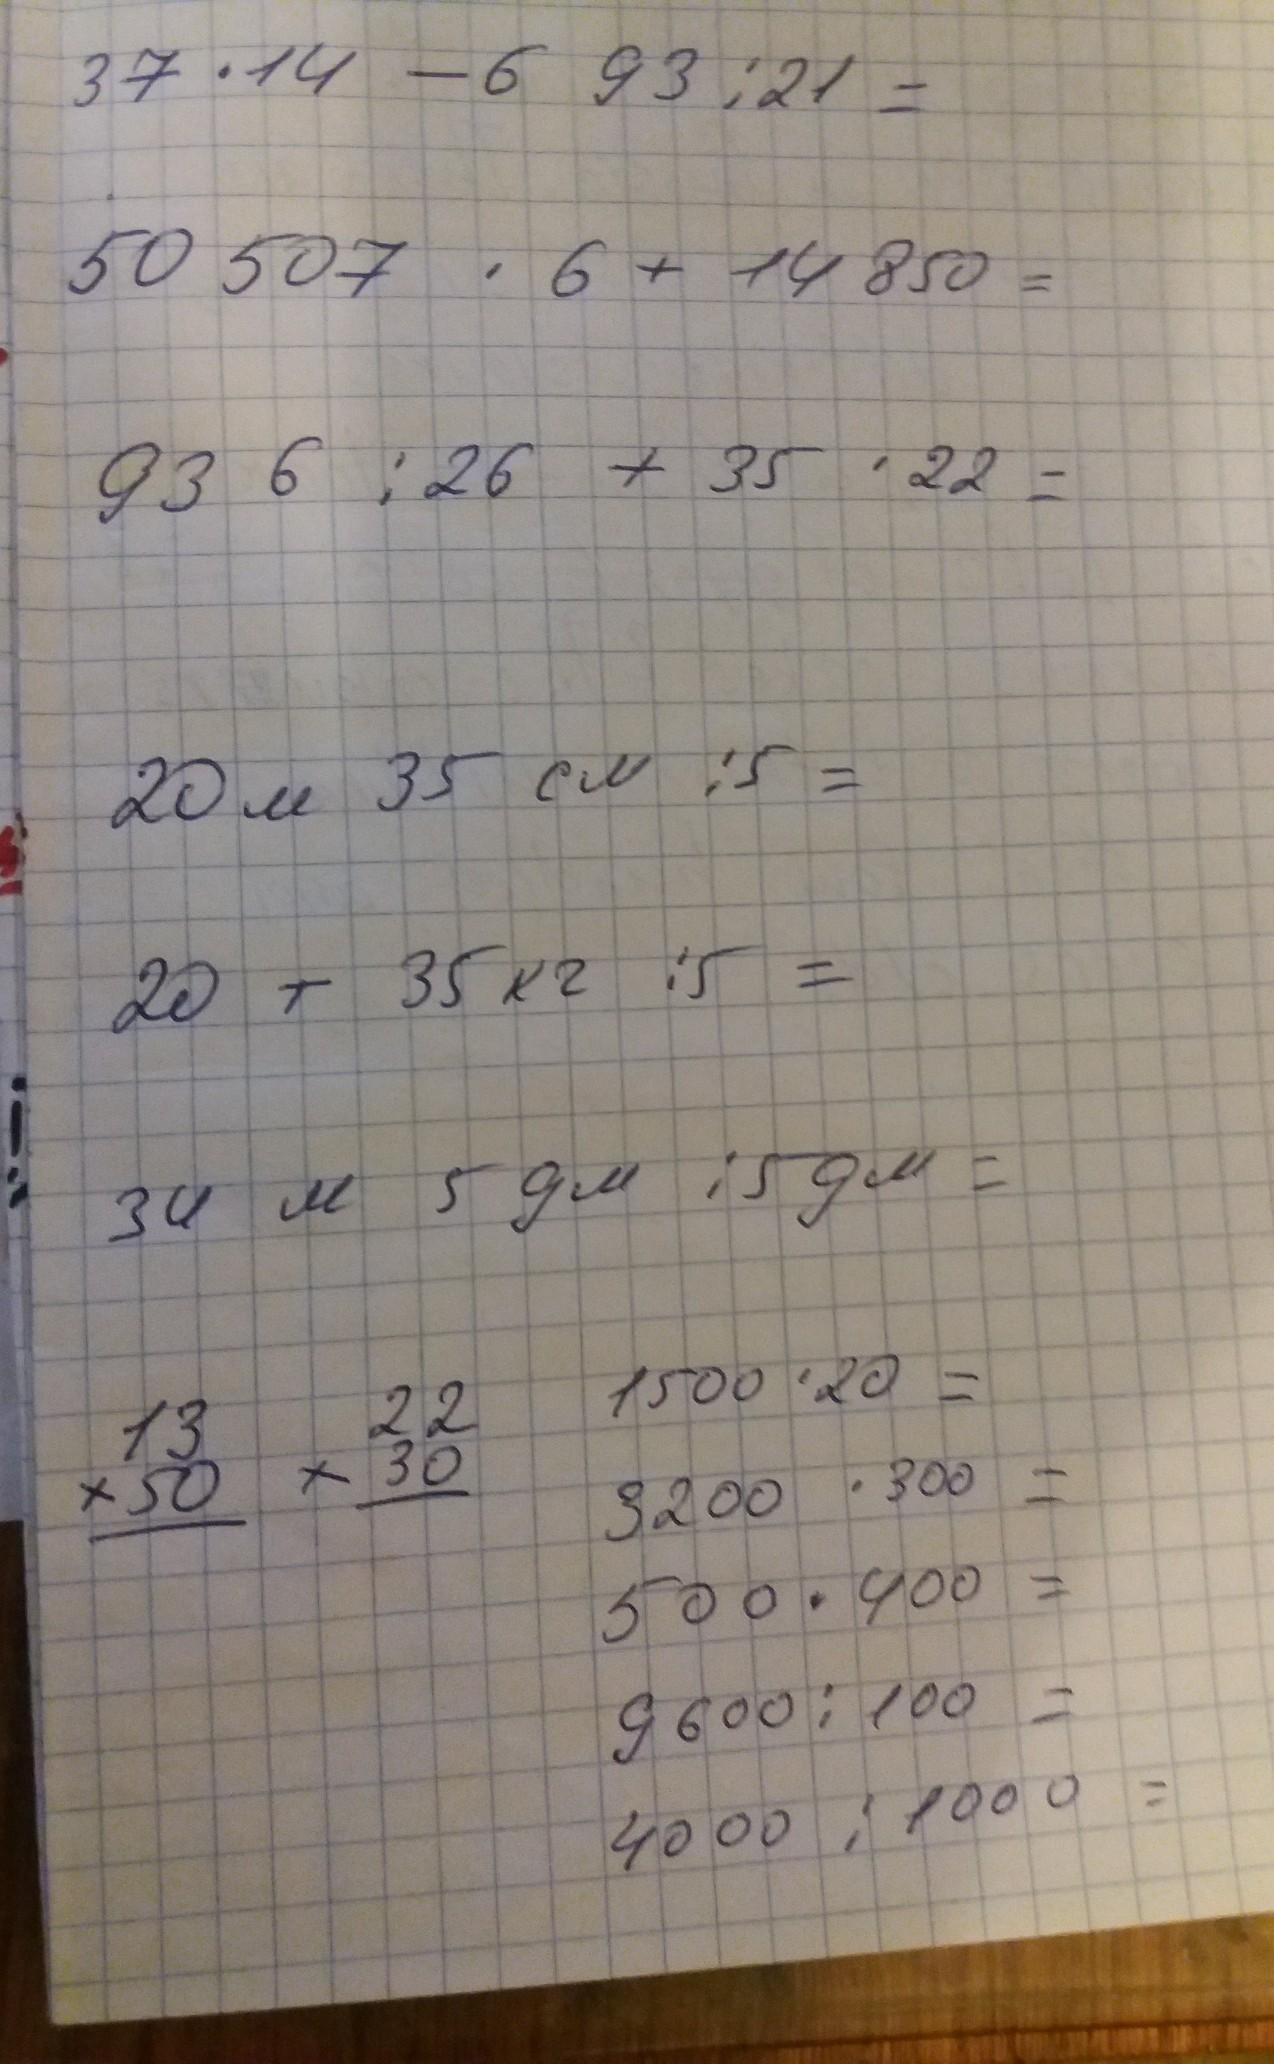 37 · 14 – 6 93 : 21 =
50 507 · 6 + 14 850 =
93 6 : 26 + 35 · 22 =
20 м 35 см : 5 =
20 т 35 кг : 5 =
34 м 5 дм : 5 дм =
13
× 50
22
× 30
1500 · 20 =
3200 · 300 =
500 · 400 =
9600 : 100 =
4000 : 1000 =